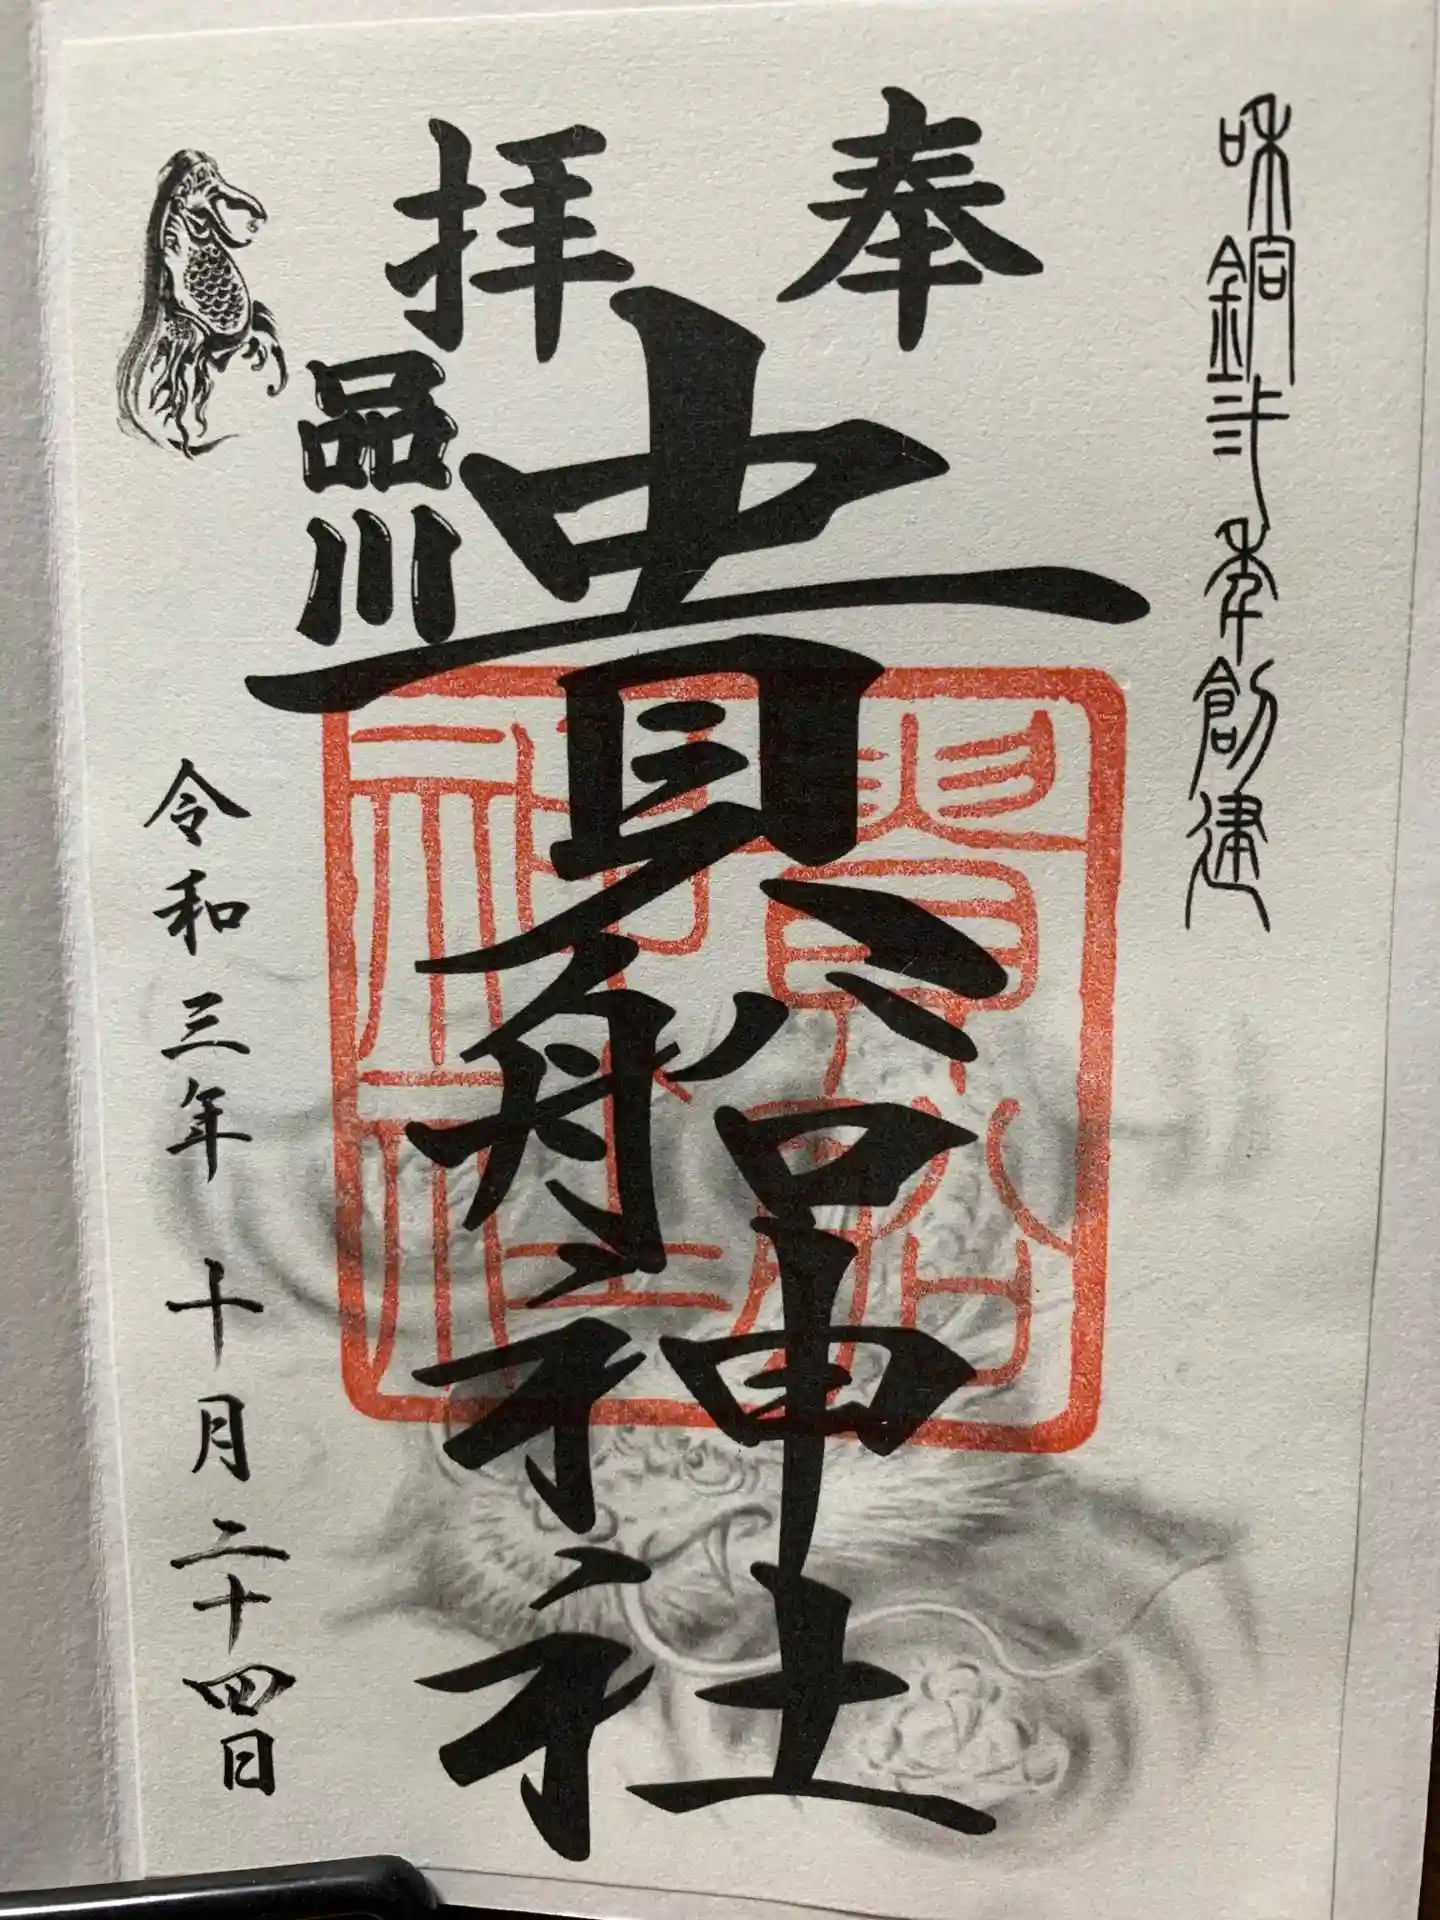 和銅弐年創建
奉拝
品川
貴船神社
貴船神社
令和三年十月二十四日